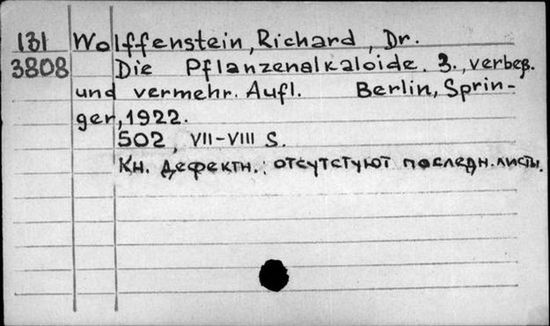 131 Wolffenstein, Richard, Dr.
3808 Die Pflanzenalkaloide. 3., verbeß.
und vermehr. Aufl. Berlin, Sprin-
ger, 1922.
502, VII-VIII S.
Кн. дефектн.: отсутстуют последн. листы.